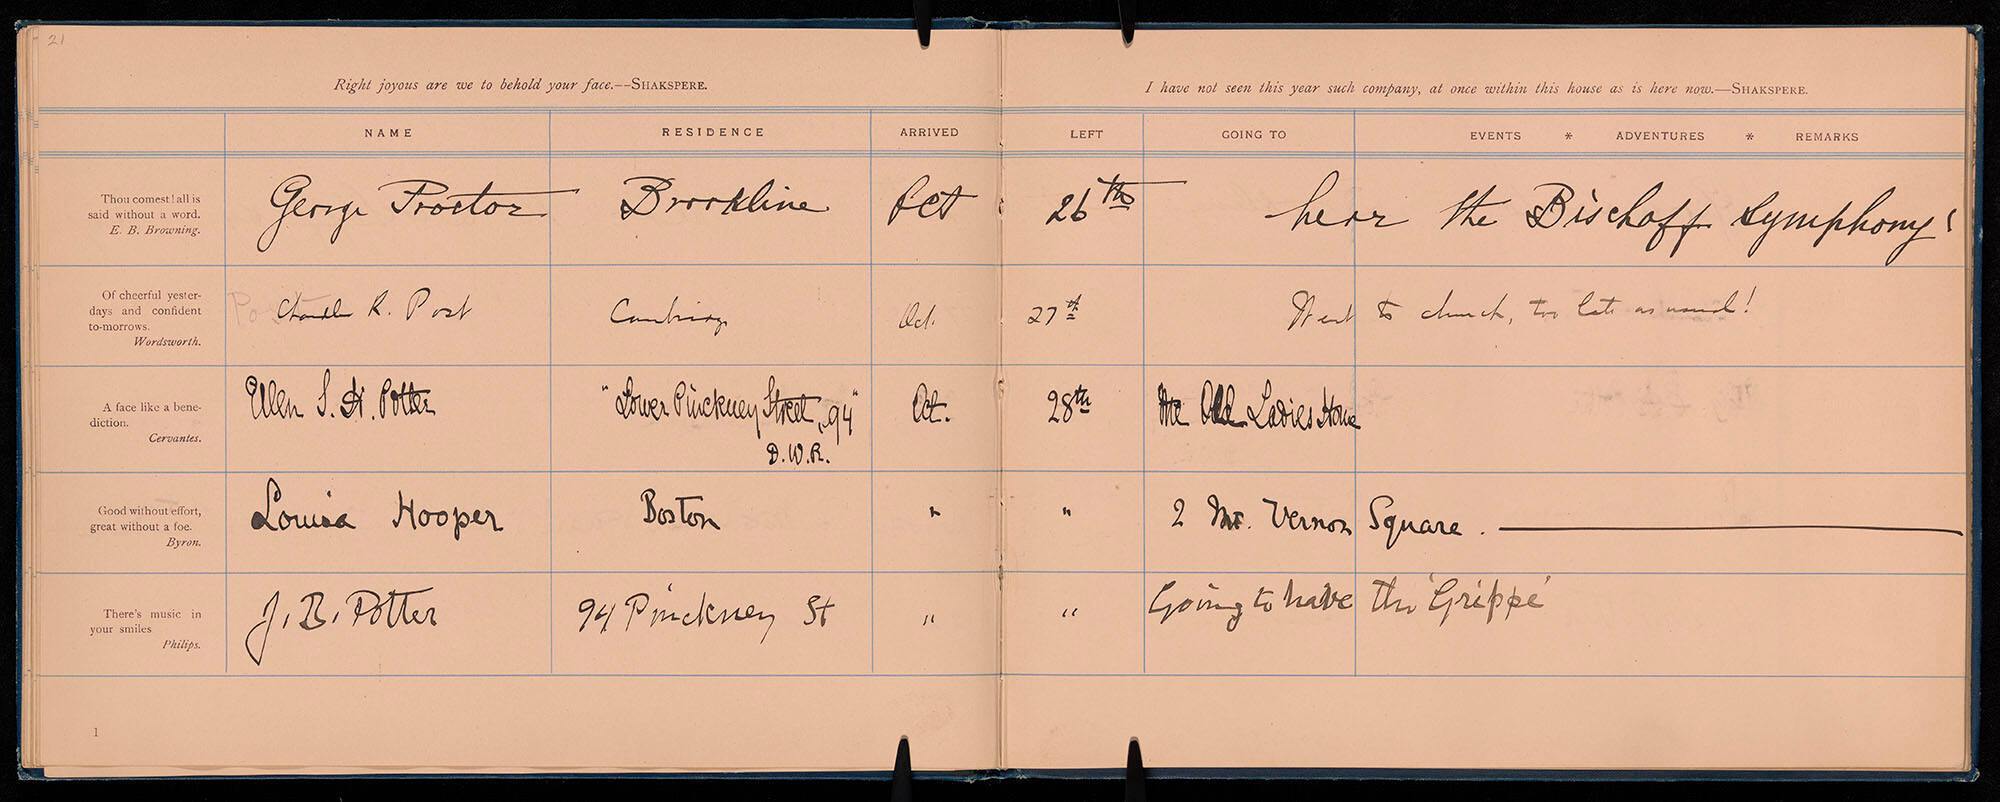 21
Right joyous are we to behold your face.—SHAKSPERE.
I have not seen this year such company, at once within this house as is here now.—SHAKSPERE.
NAME RESIDENCE ARRIVED LEFT GOING TO EVENTS * ADVENTURES * REMARKS
Thou comest! all is
said without a word.
E. B. Browning.
George Proctor Brookline Oct 26th hear the Bischoff Symphony!
Of cheerful yester-
days and confident
to-morrows.
Wordsworth.
Post
Chandler R. Post Cambridge Oct. 27th Went to church, too late as usual!
A face like a bene-
diction.
Cervantes.
Ellen S. H. Potter "Lower Pinckney Street, 94" Oct. 28th the Old Ladies Home
D.W.R.
Good without effort,
great without a foe.
Byron.
Louisa Hooper Boston " " 2 Mt. Vernon Square.
There's music in
your smiles
Philips.
J. B. Potter 94 Pinckney St " " Going to have the 'Grippe'
1